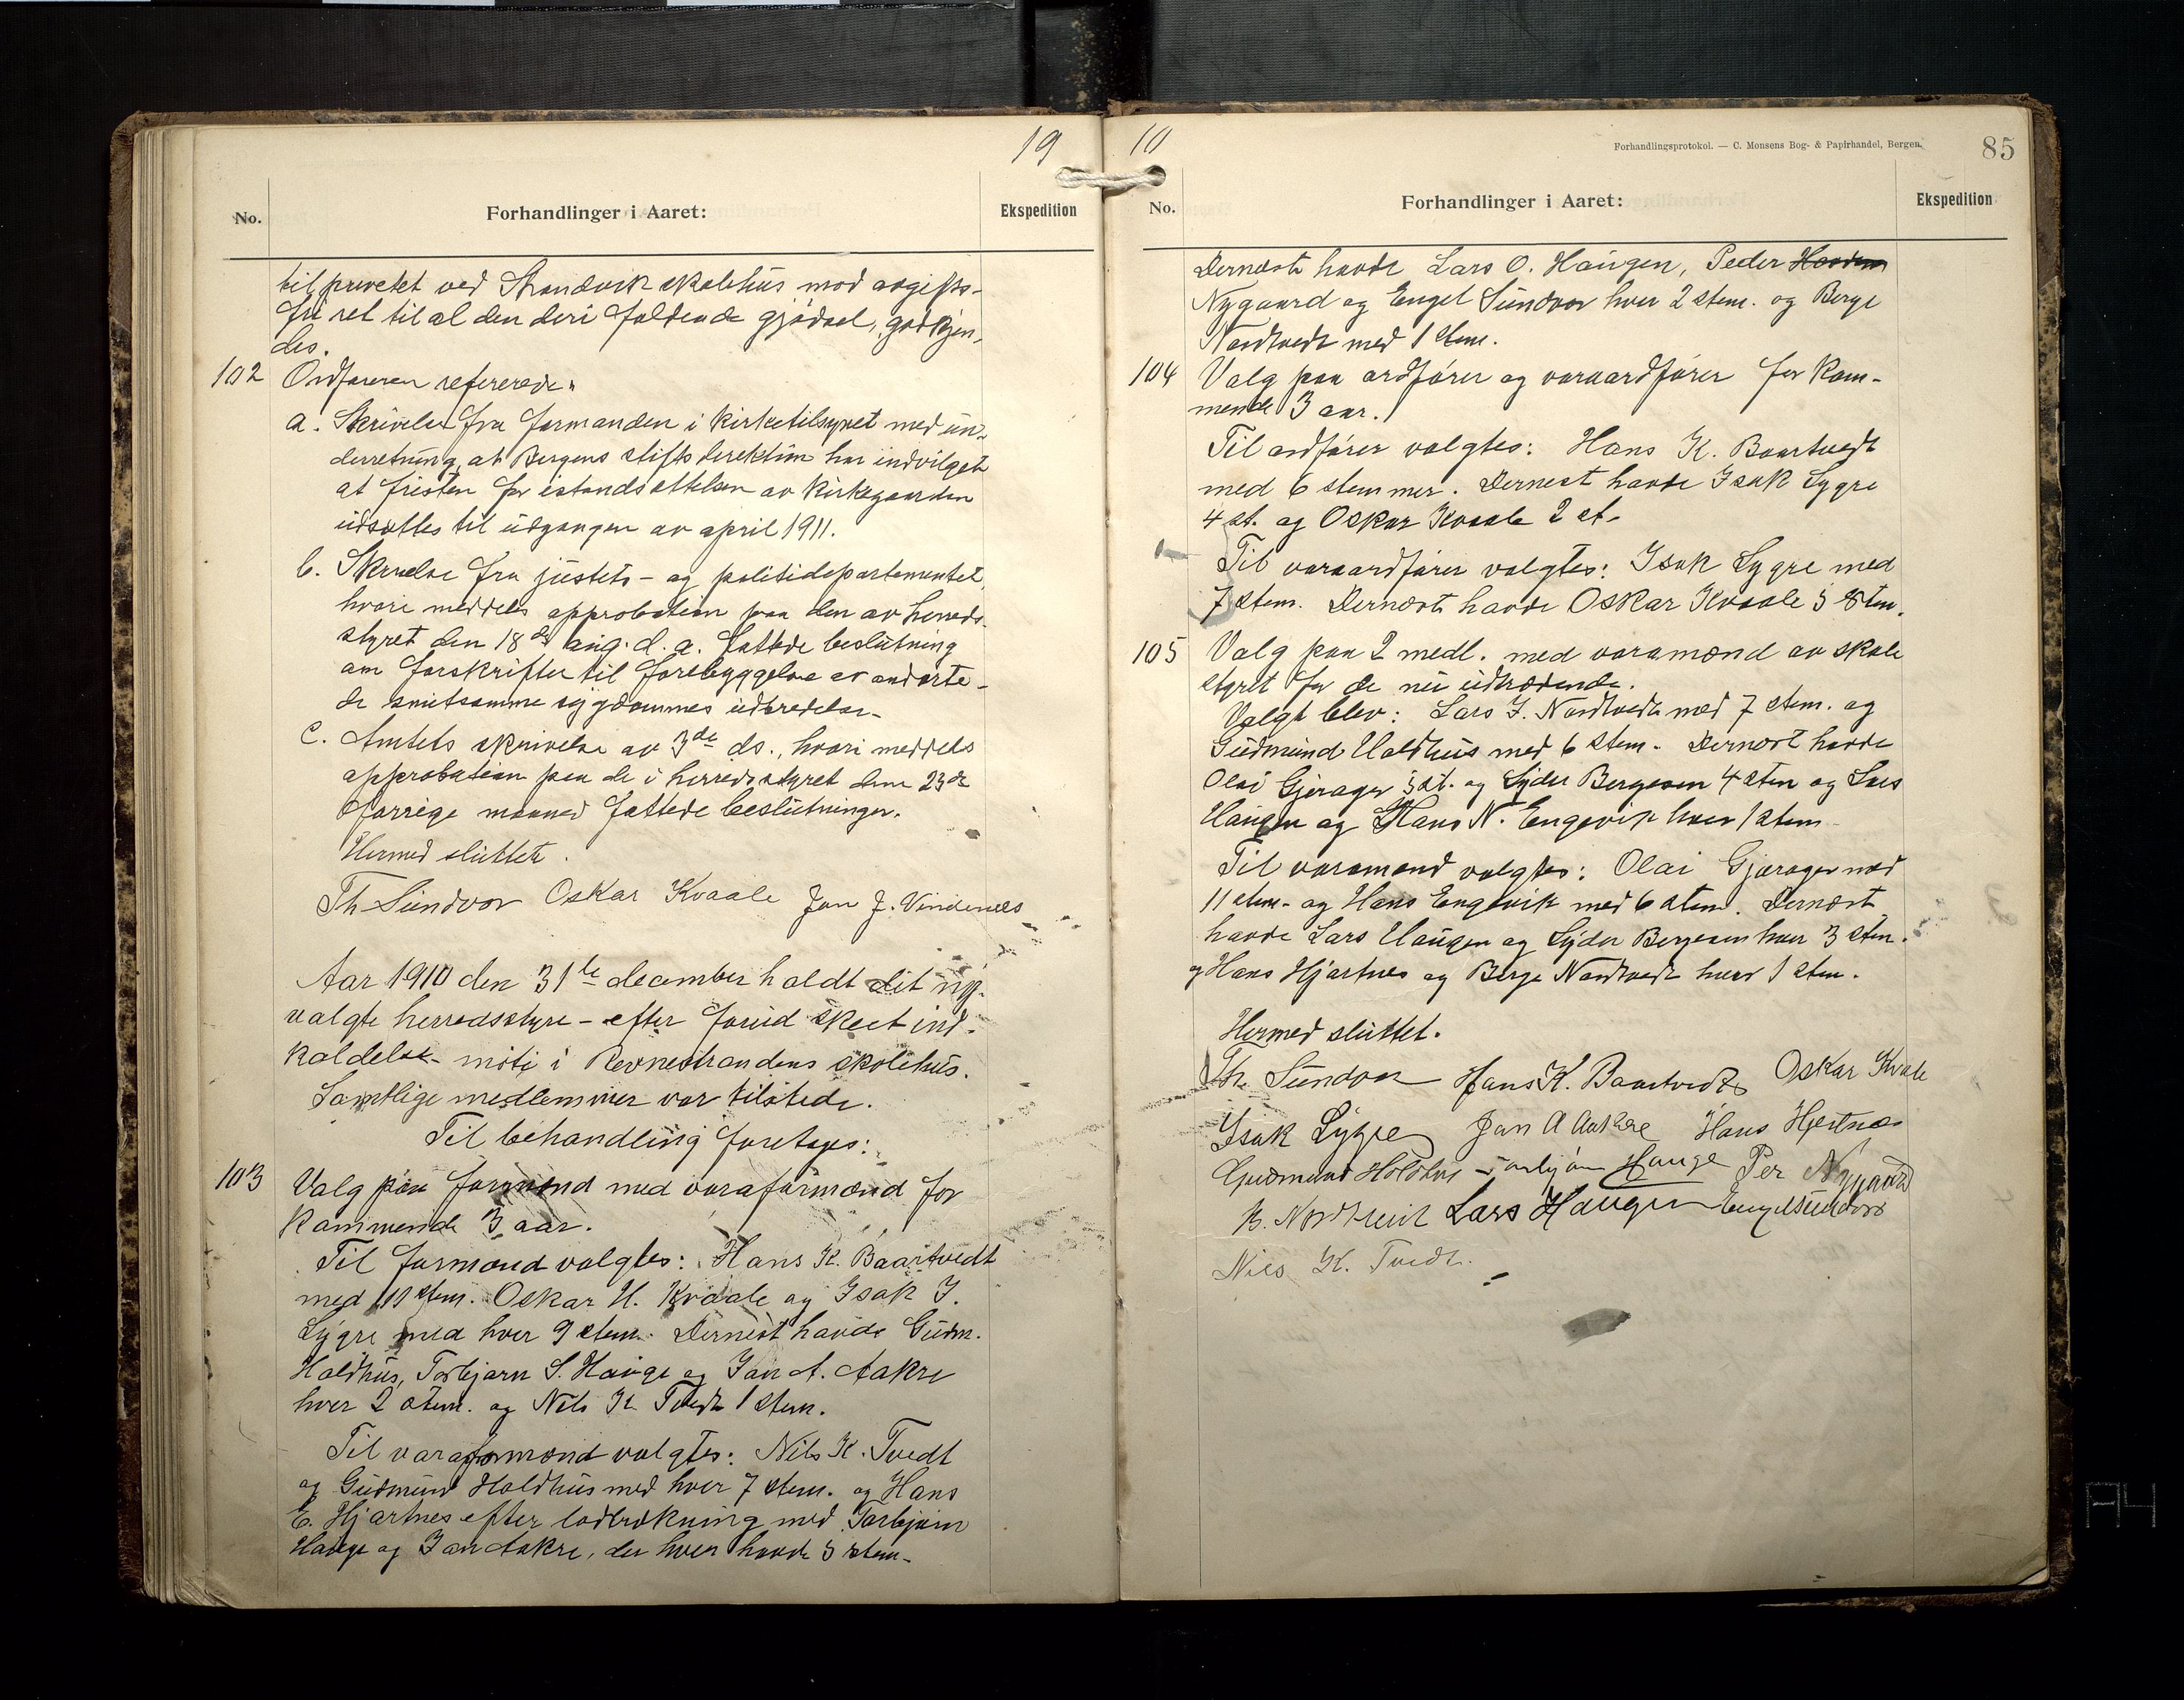 19
No.
Forhandlinger i Aaret:
Ekspedition
til privetet ved Strandvik skolehus mod avgifts-
fri ret til al den deri faldende gjødsel, godkjen-
des.
102 Ordføreren refererede:
a. Skrivelse fra formanden i kirketilsynet med un-
derretning, at Bergens stiftsdirektion har indvilget
at fristen for istandsættelsen av kirkegaarden
udsættes til udgangen av april 1911.
b. Skrivelse fra justits- og politidepartementet,
hvori meddeles approbation paa den av herreds-
styret den 18de aug. d. a. fattede beslutning
om forskrifter til forebyggelse av ondarte-
de smitsomme sygdommes udbredelse.
c. Amtets skrivelse av 3de ds., hvori meddeles
approbation paa de i herredsstyret den 23de
forrige maaned fattede beslutninger.
Hermed sluttet.
Th Sundvor Oskar Kvaale Jon J. Vindenes
Aar 1910 den 31te december holdt det ny-
valgte herredsstyre - efter forud skeet ind-
kaldelse - møte i Revnestrandens skolehus.
Samtlige medlemmer var tilstede.
Til behandling foretoges:
103 Valg paa formænd med varaformænd for
kommende 3 aar.
Til formænd valgtes: Hans K. Baartvedt
med 11 stem. Oskar H. Kvaale og Isak J.
Lygre med hver 9 stem. Dernest havde Gudm.
Holdhus, Torbjørn S. Hauge og Jan A. Aakre
hver 2 stem. og Nils K. Tvedt 1 stem.
Til varaformænd valgtes: Nils K. Tvedt
og Gudmund Holdhus med hver 7 stem. og Hans
E. Hjartnes efter lodtrækning med Torbjørn
Hauge og Jan Aakre, der hver havde 5 stem.
10
Forhandlingsprotokol. — C. Monsens Bog- & Papirhandel, Bergen.
85
No.
Forhandlinger i Aaret:
Ekspedition
Dernæst havde Lars O. Haugen, Peder
Nygaard og Engel Sundvor hver 2 stem. og Berge
Nordtvedt med 1 stem.
104 Valg paa ordfører og varaordfører for kom-
mende 3 aar.
Til ordfører valgtes: Hans K. Baartvedt
med 6 stemmer. Dernest havde Isak Lygre
4 st. og Oskar Kvaale 2 st.
Til varaordfører valgtes: Isak Lygre med
7 stem. Dernæst havde Oskar Kvaale 5 stem.
105 Valg paa 2 medl. med varamænd av skole
styret for de nu udtrædende.
Valgt blev: Lars J. Nordtvedt med 7 stem. og
Gudmund Holdhus med 6 stem. Dernæst havde
Olai Gjerager 5 st. og Syder Bergesen 4 stem og Lars
Haugen og Hans N. Engevik hver 1 stem
Til varamænd valgtes: Olai Gjærager med
11 stem. og Hans Engevik med 6 stem. Dernæst
havde Lars Haugen og Syder Bergesen hver 3 stem.
og Hans Hjartnes og Berge Nordtvedt hver 1 stem.
Hermed sluttet.
Th. Sundvor Hans K. Baartvedt Oskar Kvale
Isak Lygre Jan A Aakre Hans Hjertnes
Gudmund Holdhus Torbjørn Hauge Per Nygaard
B. Nordtveit Lars Haugen Engel Sundvor
Nils K. Tvedt.